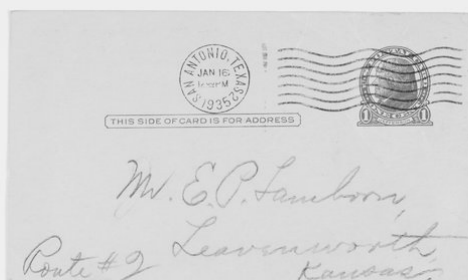 SAN ANTONIO, TEXAS 2
JAN 16
M
1935
1 1
THIS SIDE OF CARD IS FOR ADDRESS
Mr. E. P. Lamborn,
Leavenworth,
Route #2 Kansas.